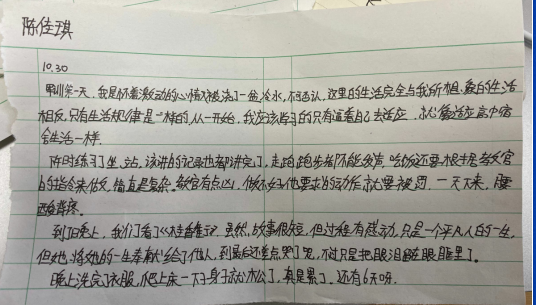 陈佳琪
10.30
军训第一天,我是怀着激动的心情被浇了一盆冷水,不可否认,这里的生活完全与我所想象的生活
相反,只有生活规律是一样的,从一开始,我应该学习的只有逼着自己去适应,就像适应高中宿
舍生活一样。
阵时练习了坐、站,该讲的记录也都讲完了,走路跑步都不能发声,吃饭还要根据教官
的指令来做饭,简直是复杂。教官有点凶,做不好他要求的动作就要被罚,一天下来,腰
酸背疼。
到了晚上,我们看了,虽然,故事很短,但过程有感动,只是一个平凡人的一生,
但她,将她的一生奉献给了他人,到最后还差点哭了哭,不过只是把眼泪藏眼眶里了。
晚上洗完了衣服,爬上床一下子身子就冰凉了,真是累了,还有6天呀。